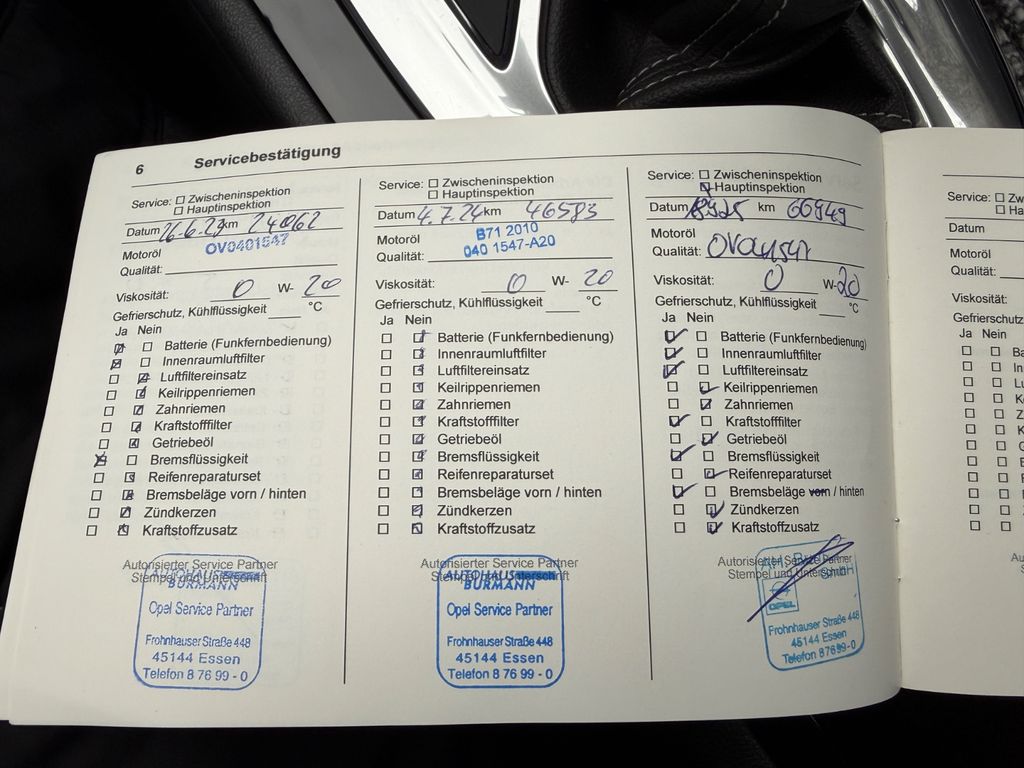 6 Servicebestätigung
Service: □ Zwischeninspektion
□ Hauptinspektion
Datum 26.6.23 km 24062
Motoröl OV0401547
Qualität:
Viskosität: 0 W- 20
Gefrierschutz, Kühlflüssigkeit °C
Ja Nein
Batterie (Funkfernbedienung)
Innenraumluftfilter
Luftfiltereinsatz
Keilrippenriemen
Zahnriemen
Kraftstofffilter
Getriebeöl
Bremsflüssigkeit
Reifenreparaturset
Bremsbeläge vorn / hinten
Zündkerzen
Kraftstoffzusatz
Autorisierter Service Partner
Stempel und Unterschrift
AUTOHAUS
BURMANN
Opel Service Partner
Frohnhauser Straße 448
45144 Essen
Telefon 8 76 99 - 0
Service: □ Zwischeninspektion
□ Hauptinspektion
Datum 4.7.24 km 46583
B71 2010
Motoröl
040 1547-A20
Qualität:
Viskosität: 0 W- 20
Gefrierschutz, Kühlflüssigkeit °C
Ja Nein
Batterie (Funkfernbedienung)
Innenraumluftfilter
Luftfiltereinsatz
Keilrippenriemen
Zahnriemen
Kraftstofffilter
Getriebeöl
Bremsflüssigkeit
Reifenreparaturset
Bremsbeläge vorn / hinten
Zündkerzen
Kraftstoffzusatz
Autorisierter Service Partner
Stempel und Unterschrift
AUTOHAUS
BURMANN
Opel Service Partner
Frohnhauser Straße 448
45144 Essen
Telefon 8 76 99 - 0
Service: □ Zwischeninspektion
Hauptinspektion
Datum km 66949
Motoröl
Qualität:
Viskosität: 0 W-20
Gefrierschutz, Kühlflüssigkeit °C
Ja Nein
Batterie (Funkfernbedienung)
Innenraumluftfilter
Luftfiltereinsatz
Keilrippenriemen
Zahnriemen
Kraftstofffilter
Getriebeöl
Bremsflüssigkeit
Reifenreparaturset
Bremsbeläge vorn / hinten
Zündkerzen
Kraftstoffzusatz
Autorisierter Service Partner
Stempel und Unterschrift
OPEL
Frohnhauser Straße 448
45144 Essen
Telefon 8 76 99 - 0
Service: □ Zw
□ Ha
Datum
Motoröl
Qualität:
Viskosität:
Gefrierschutz
Ja Nein